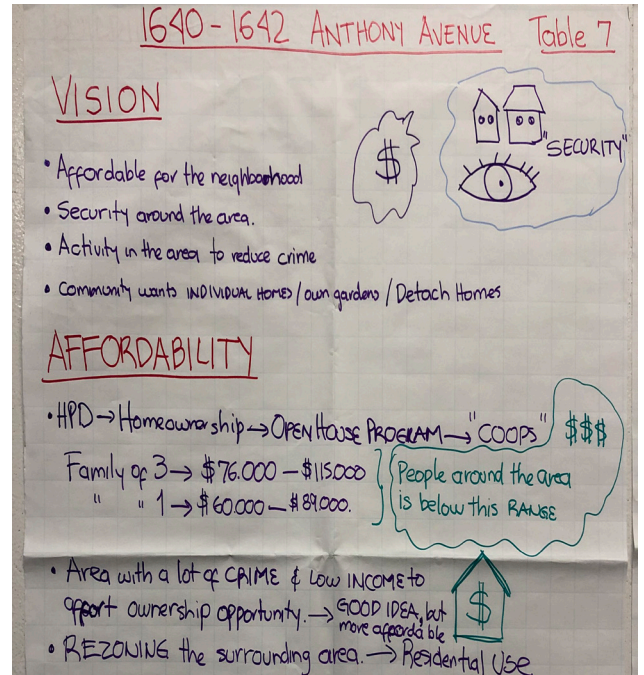 1640-1642 ANTHONY AVENUE Table 7
VISION
"SECURITY"
$
• Affordable for the neighborhood
• Security around the area.
• Activity in the area to reduce crime
• Community wants INDIVIDUAL HOMES/own gardens/Detach Homes
AFFORDABILITY
• HPD→Homeownership→OPEN HOUSE PROGRAM→"COOPS" $$$
Family of 3→$76.000-$115.000
" " 1→$60.000-$89.000.
People around the area
is below this RANGE
• Area with a lot of CRIME & LOW INCOME to
affort ownership opportunity.→GOOD IDEA, but
more affordable
$
• REZONING the surrounding area.→Residential Use